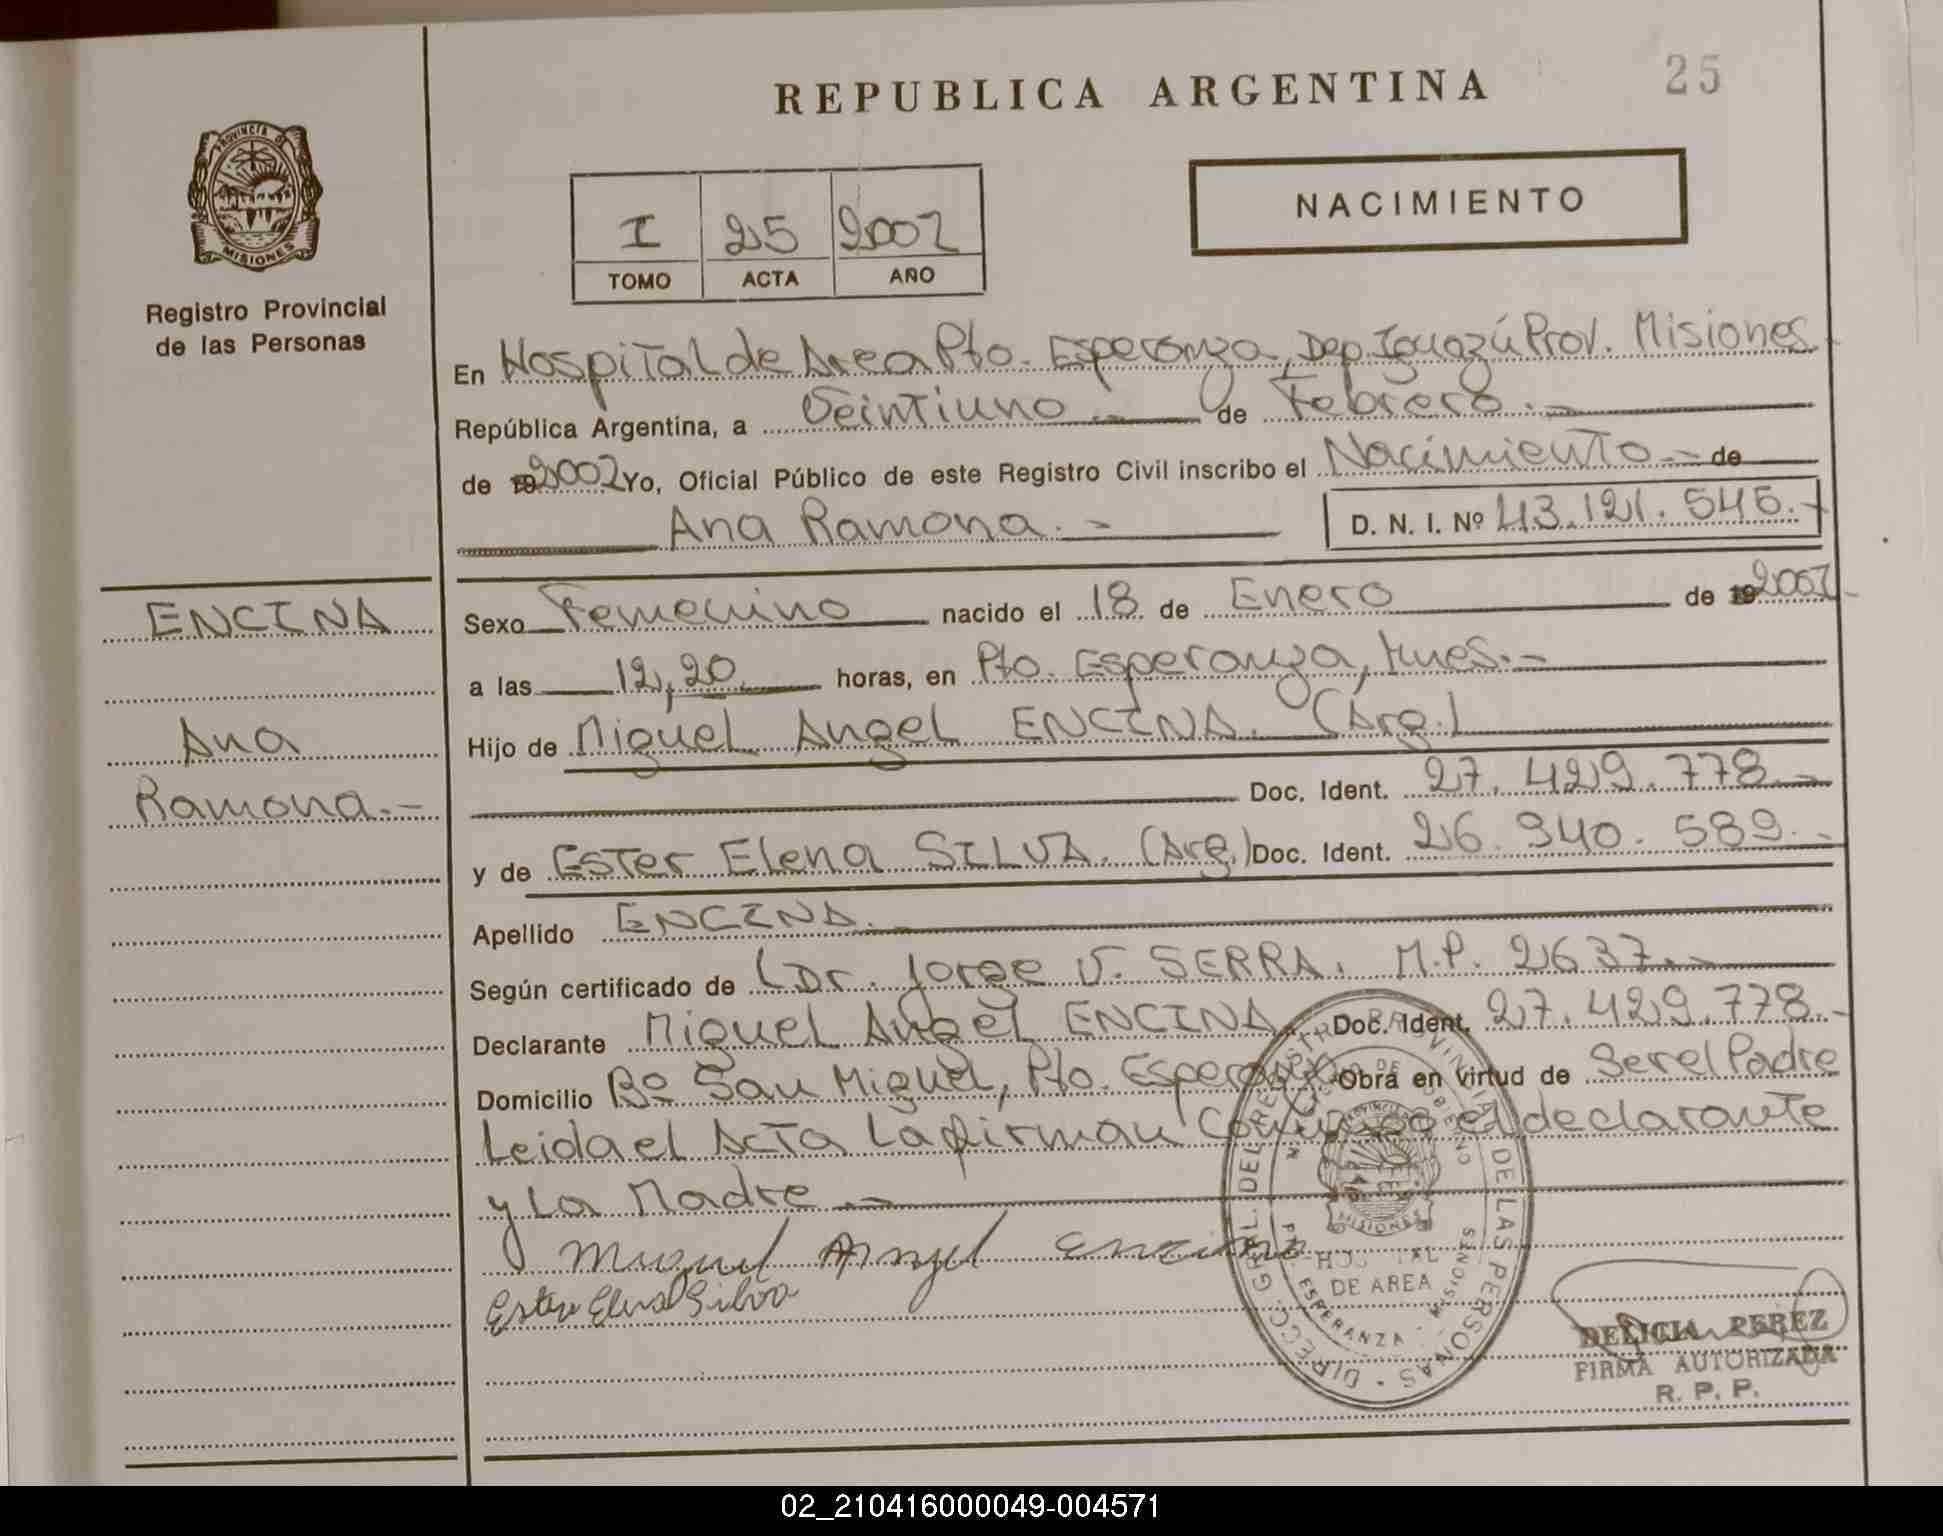 REPUBLICA ARGENTINA
25
PROVINCIA DE MISIONES
Registro Provincial
de las Personas
I 25 2002
TOMO ACTA AÑO
NACIMIENTO
En Hospital de Area Pto. Esperanza, Dep. Iguazú Prov. Misiones
República Argentina, a Veintiuno.- de Febrero.-
de 2002 Yo, Oficial Público de este Registro Civil inscribo el Nacimiento.- de
Ana Ramona.- D. N. I. Nº 43.121.545.-
ENCINA
Ana
Ramona.-
Sexo Femenino nacido el 18 de Enero de 2002.-
a las 12,20 horas, en Pto. Esperanza, Mnes.-
Hijo de Miguel Angel ENCINA. (Arg.)
Doc. Ident. 27.429.778.-
y de Ester Elena SILVA. (Arg.) Doc. Ident. 26.940.589.-
Apellido ENCINA.-
Según certificado de Dr. Jorge V. SERRA. M.P. 2637.-
Declarante Miguel Angel ENCINA. Doc. Ident. 27.429.778.-
Domicilio Bº San Miguel, Pto. Esperanza Obra en virtud de Ser el Padre
Leida el Acta La firman Conmigo el declarante
y La Madre.-
Miguel Angel Encina
Ester Elena Silva
DIRECC. GRAL. DEL REGISTRO PROVINCIAL DE LAS PERSONAS
MISIONES
HOSPITAL
DE AREA
ESPERANZA - MISIONES
DELICIA PEREZ
FIRMA AUTORIZADA
R. P. P.
02_210416000049-004571